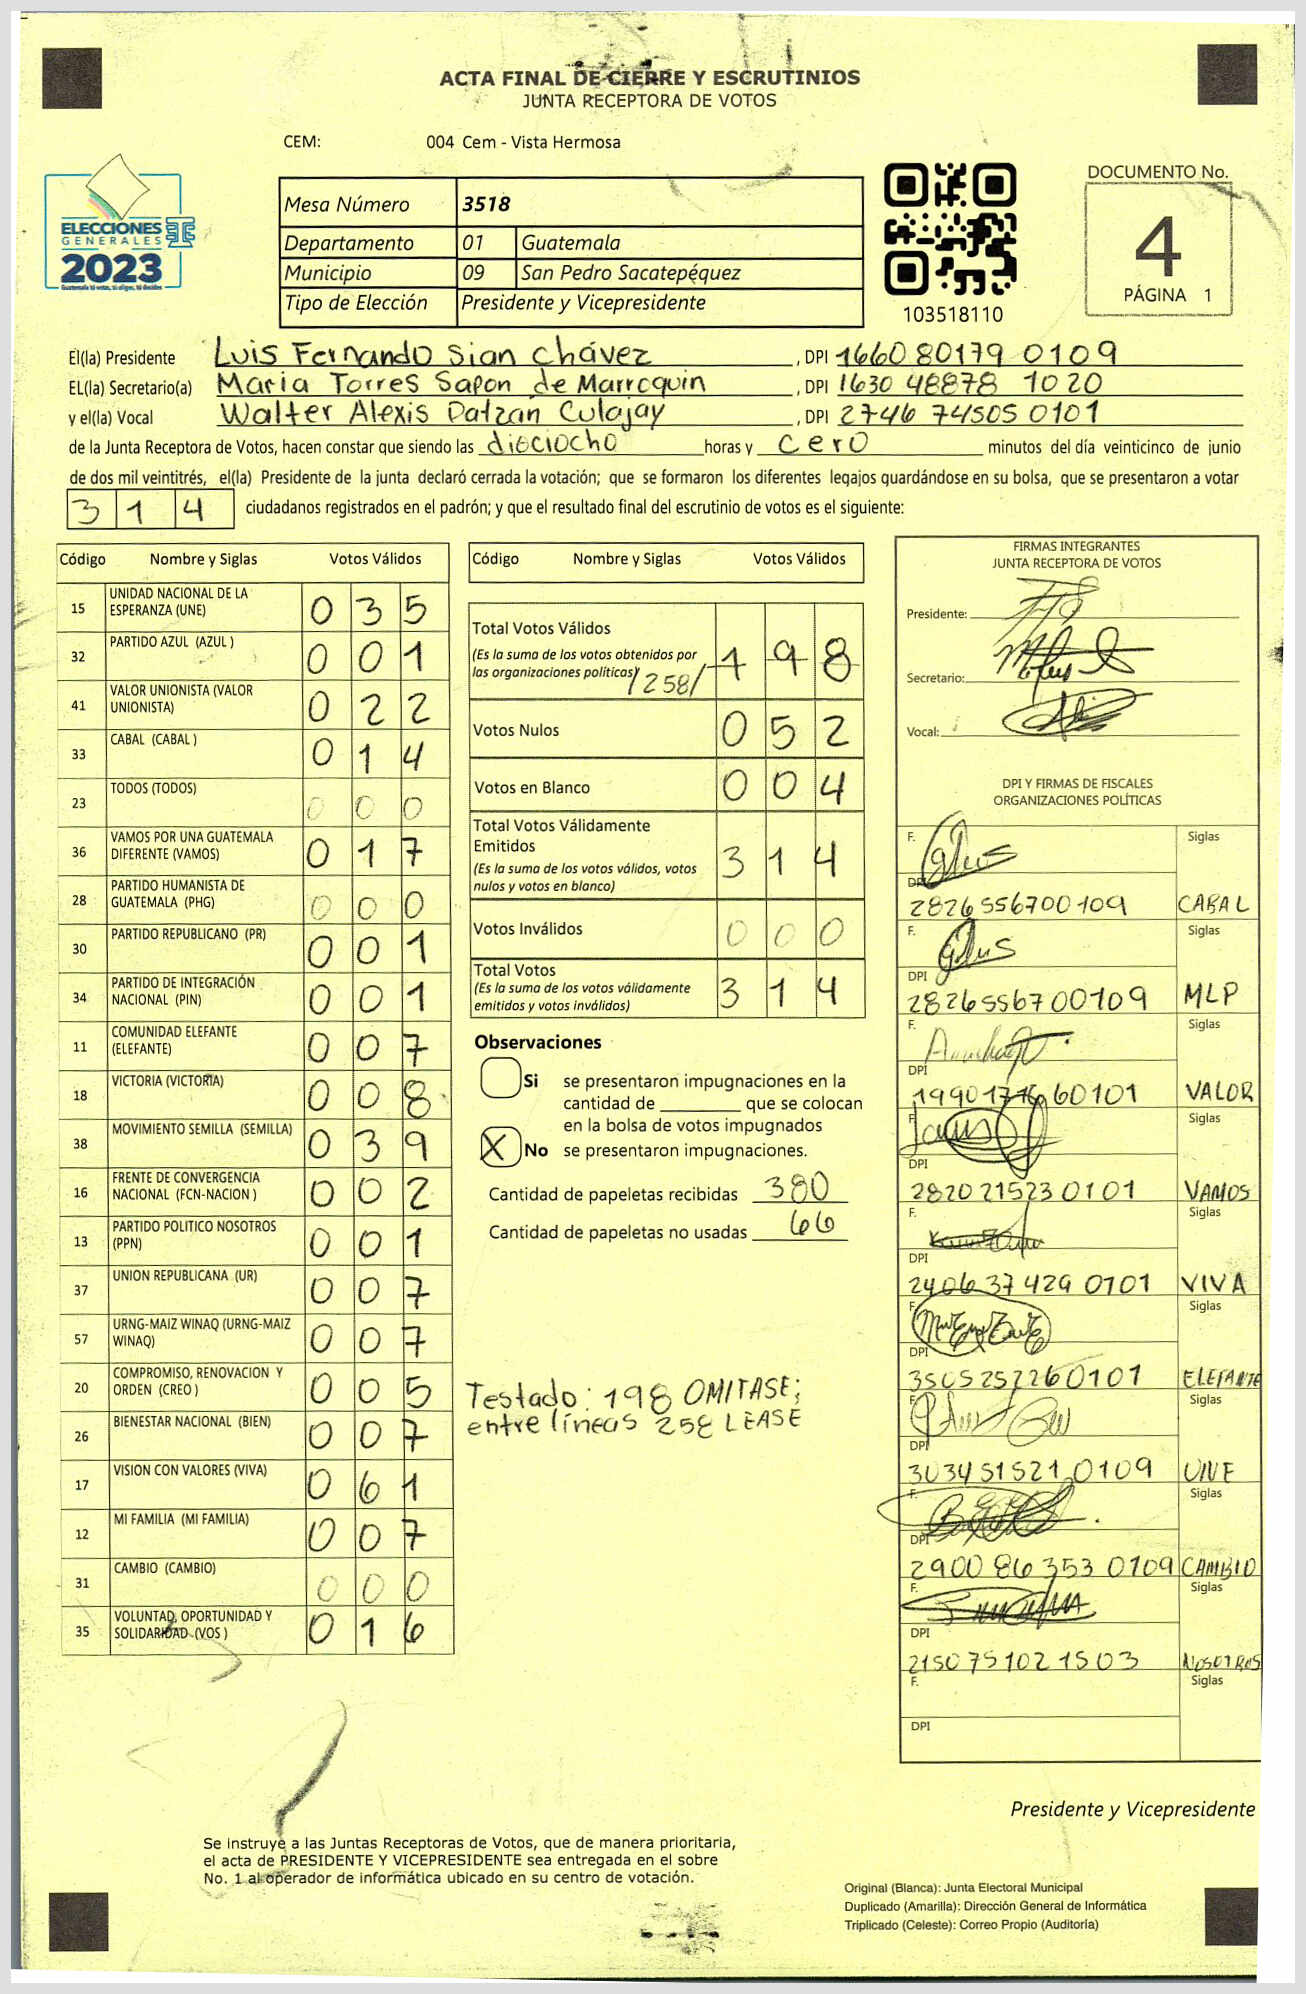 ACTA FINAL DE CIERRE Y ESCRUTINIOS
JUNTA RECEPTORA DE VOTOS
CEM: 004 Cem - Vista Hermosa
ELECCIONES
GENERALES
2023
Guatemala tú votas, tú eliges, tú decides
Mesa Número 3518
Departamento 01 Guatemala
Municipio 09 San Pedro Sacatepéquez
Tipo de Elección Presidente y Vicepresidente
103518110
DOCUMENTO No.
4
PÁGINA 1
El(la) Presidente Luis Fernando Sian Chávez, DPI 1660 80179 0109
EL(la) Secretario(a) Maria Torres Sapon de Marroquin, DPI 1630 48878 1020
y el(la) Vocal Walter Alexis Patzán Culajay, DPI 2746 74505 0101
de la Junta Receptora de Votos, hacen constar que siendo las dieciocho horas y cero minutos del día veinticinco de junio
de dos mil veintitrés, el(la) Presidente de la junta declaró cerrada la votación; que se formaron los diferentes legajos guardándose en su bolsa, que se presentaron a votar
314 ciudadanos registrados en el padrón; y que el resultado final del escrutinio de votos es el siguiente:
Código Nombre y Siglas Votos Válidos
15 UNIDAD NACIONAL DE LA ESPERANZA (UNE) 035
32 PARTIDO AZUL (AZUL ) 001
41 VALOR UNIONISTA (VALOR UNIONISTA) 022
33 CABAL (CABAL ) 014
23 TODOS (TODOS) 000
36 VAMOS POR UNA GUATEMALA DIFERENTE (VAMOS) 017
28 PARTIDO HUMANISTA DE GUATEMALA (PHG) 000
30 PARTIDO REPUBLICANO (PR) 001
34 PARTIDO DE INTEGRACIÓN NACIONAL (PIN) 001
11 COMUNIDAD ELEFANTE (ELEFANTE) 007
18 VICTORIA (VICTORIA) 008
38 MOVIMIENTO SEMILLA (SEMILLA) 039
16 FRENTE DE CONVERGENCIA NACIONAL (FCN-NACION ) 002
13 PARTIDO POLITICO NOSOTROS (PPN) 001
37 UNION REPUBLICANA (UR) 007
57 URNG-MAIZ WINAQ (URNG-MAIZ WINAQ) 007
20 COMPROMISO, RENOVACION Y ORDEN (CREO ) 005
26 BIENESTAR NACIONAL (BIEN) 007
17 VISION CON VALORES (VIVA) 061
12 MI FAMILIA (MI FAMILIA) 007
31 CAMBIO (CAMBIO) 000
35 VOLUNTAD, OPORTUNIDAD Y SOLIDARIDAD (VOS ) 016
Código Nombre y Siglas Votos Válidos
Total Votos Válidos
(Es la suma de los votos obtenidos por
las organizaciones políticas) /258/ 198
Votos Nulos 052
Votos en Blanco 004
Total Votos Válidamente
Emitidos 314
(Es la suma de los votos válidos, votos
nulos y votos en blanco)
Votos Inválidos 000
Total Votos 314
(Es la suma de los votos válidamente
emitidos y votos inválidos)
Observaciones
Si se presentaron impugnaciones en la
cantidad de ________ que se colocan
en la bolsa de votos impugnados
X No se presentaron impugnaciones.
Cantidad de papeletas recibidas 380
Cantidad de papeletas no usadas 66
Testado: 198 OMITASE;
entre líneas 258 LEASE
FIRMAS INTEGRANTES
JUNTA RECEPTORA DE VOTOS
Presidente:
Secretario:
Vocal:
DPI Y FIRMAS DE FISCALES
ORGANIZACIONES POLÍTICAS
F. Siglas
DPI
2826556700109 CABAL
F. Siglas
DPI
2826556700109 MLP
F. Siglas
DPI
VALOR
F. Siglas
DPI
2820215230101 VAMOS
F. Siglas
DPI
2406374290101 VIVA
F. Siglas
DPI
3505252260101 ELEFANTE
F. Siglas
DPI
3034515210109 UNE
F. Siglas
DPI
2900863530109 CAMBIO
F. Siglas
DPI
2150751021503 NOSOTROS
F. Siglas
DPI
Presidente y Vicepresidente
Se instruye a las Juntas Receptoras de Votos, que de manera prioritaria,
el acta de PRESIDENTE Y VICEPRESIDENTE sea entregada en el sobre
No. 1 al operador de informática ubicado en su centro de votación.
Original (Blanca): Junta Electoral Municipal
Duplicado (Amarilla): Dirección General de Informática
Triplicado (Celeste): Correo Propio (Auditoría)